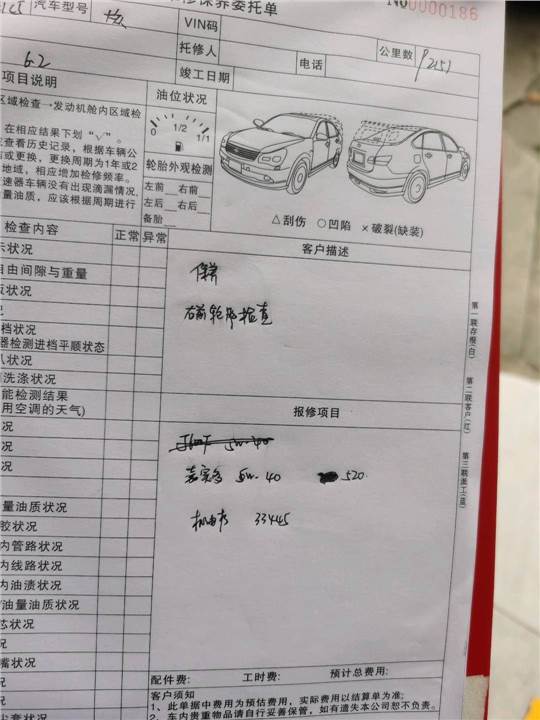 修保养委托单
No0000186
汽车型号
VIN码
托修人
电话
公里数 92151
竣工日期
6.2
项目说明
油位状况
区域检查→发动机舱内区域检
在相应结果下划“√”。
查看历史记录，根据车辆公
或更换，更换周期为1年或2
地域，相应增加检修频率。
速器车辆没有出现滴漏情况，
量油质，应该根据周期进行
0 1/2 1/1
轮胎外观检测
左前 右前
左后 右后
备胎
△刮伤 ○凹陷 ×破裂(缺装)
检查内容
正常 异常
客户描述
示状况
自由间隙与重量
版状况
况
档状况
器检测进档平顺状态
八状况
洗涤状况
能检测结果
用空调的天气)
况
况
况
量油质状况
胶状况
内管路状况
内线路状况
内油渍状况
油量油质状况
态状况
况
嘴状况
况
套状况
保养
右前轮胎检查
报修项目
5W-40
嘉实多 5W-40 520
机油格 33445
配件费: 工时费: 预计总费用:
客户须知
1、此单据中费用为预估费用，实际费用以结算单为准;
2、车内贵重物品请自行妥善保管，如有遗失本公司恕不负责。
第一联存根(白)
第二联客户(红)
第三联派工(蓝)